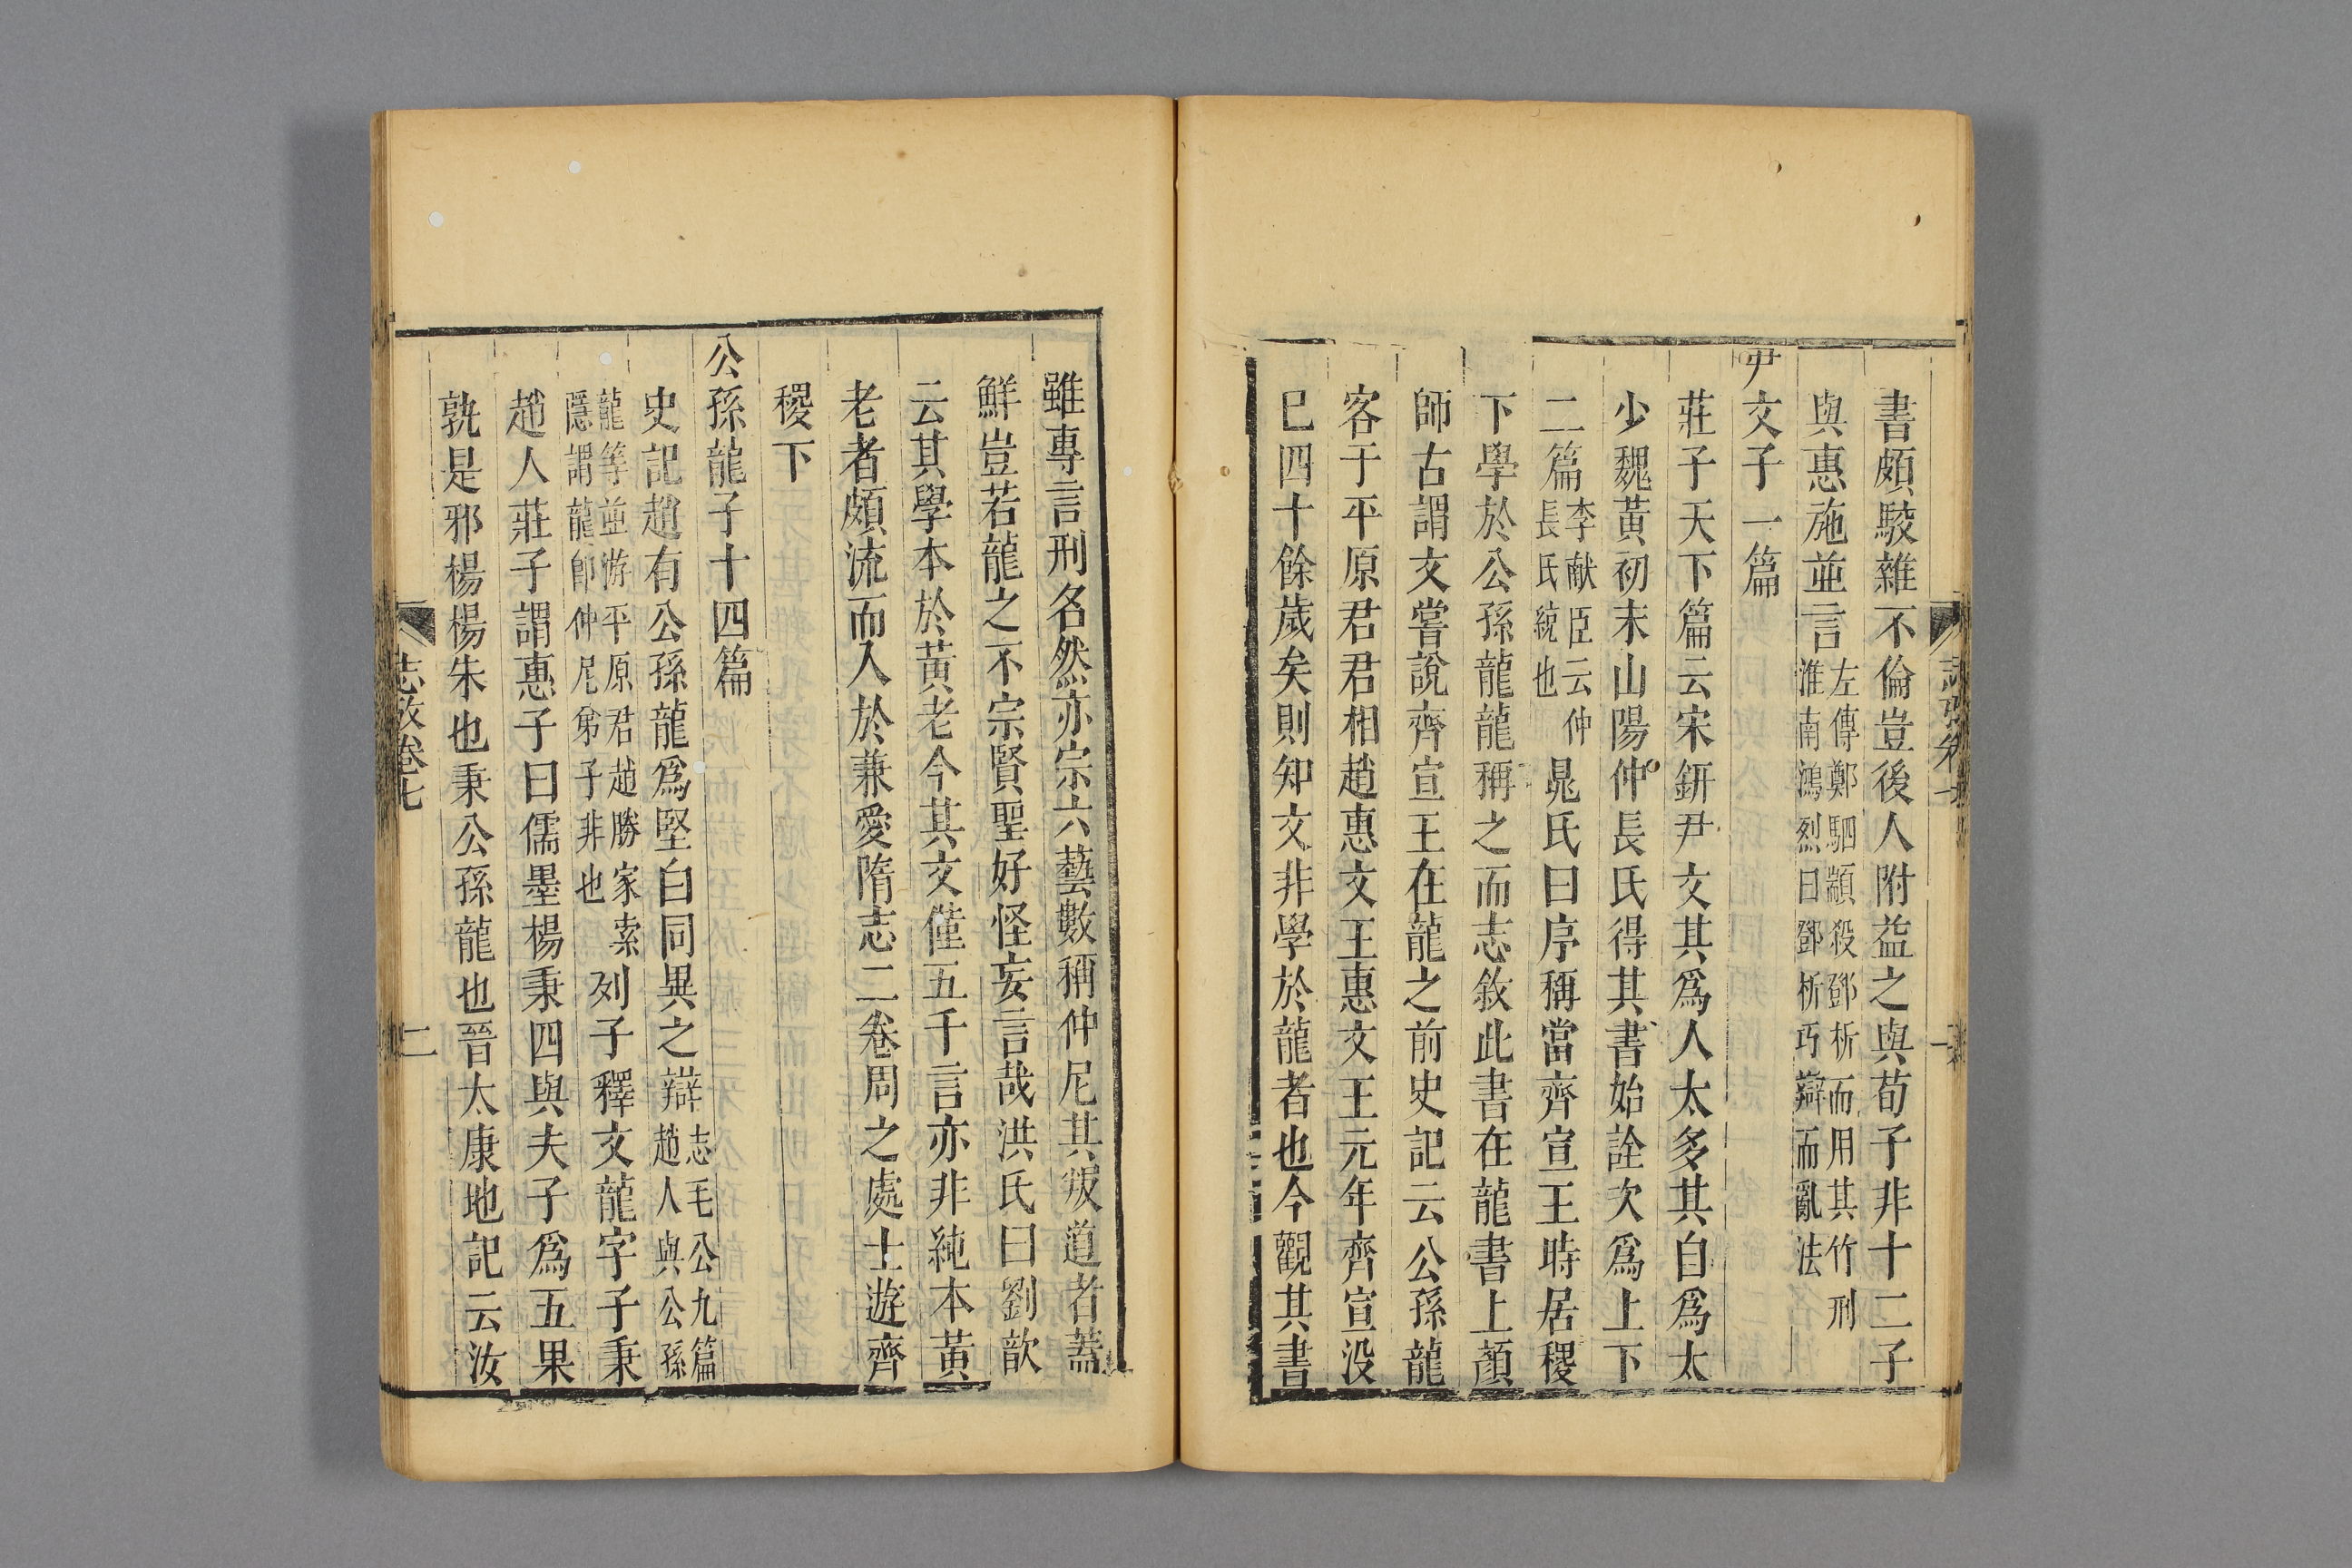 書頗駮雜不倫豈後人附益之與荀子非十二子
與惠施並言左傳鄭駟顓殺鄧析而用其竹刑淮南鴻烈曰鄧析巧辯而亂法
尹文子一篇
莊子天下篇云宋鈃尹文其爲人太多其自爲太
少魏黃初末山陽仲長氏得其書始詮次爲上下
二篇李献臣云仲長氏統也晁氏曰序稱當齊宣王時居稷
下學於公孫龍龍稱之而志敘此書在龍書上顏
師古謂文嘗說齊宣王在龍之前史記云公孫龍
客于平原君君相趙惠文王惠文王元年齊宣没
已四十餘歲矣則知文非學於龍者也今觀其書
雖專言刑名然亦宗六藝數稱仲尼其叛道者蓋
鮮豈若龍之不宗賢聖好怪妄言哉洪氏曰劉歆
云其學本於黃老今其文僅五千言亦非純本黃
老者頗流而入於兼愛隋志二卷周之處士遊齊
稷下
公孫龍子十四篇
史記趙有公孫龍爲堅白同異之辯志毛公九篇趙人與公孫
龍等並游平原君趙勝家索隱謂龍卽仲尼弟子非也列子釋文龍字子秉
趙人莊子謂惠子曰儒墨楊秉四與夫子爲五果
孰是邪楊楊朱也秉公孫龍也晉太康地記云汝
志攷卷七
二